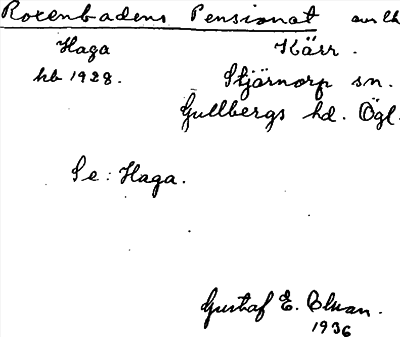 Rosenbadens Pensionat avlh
Haga Kärr.
hb 1928. Stjärnorp sn.
Gullbergs hd. Ögl.
Se: Haga.
Gustaf E.
1936